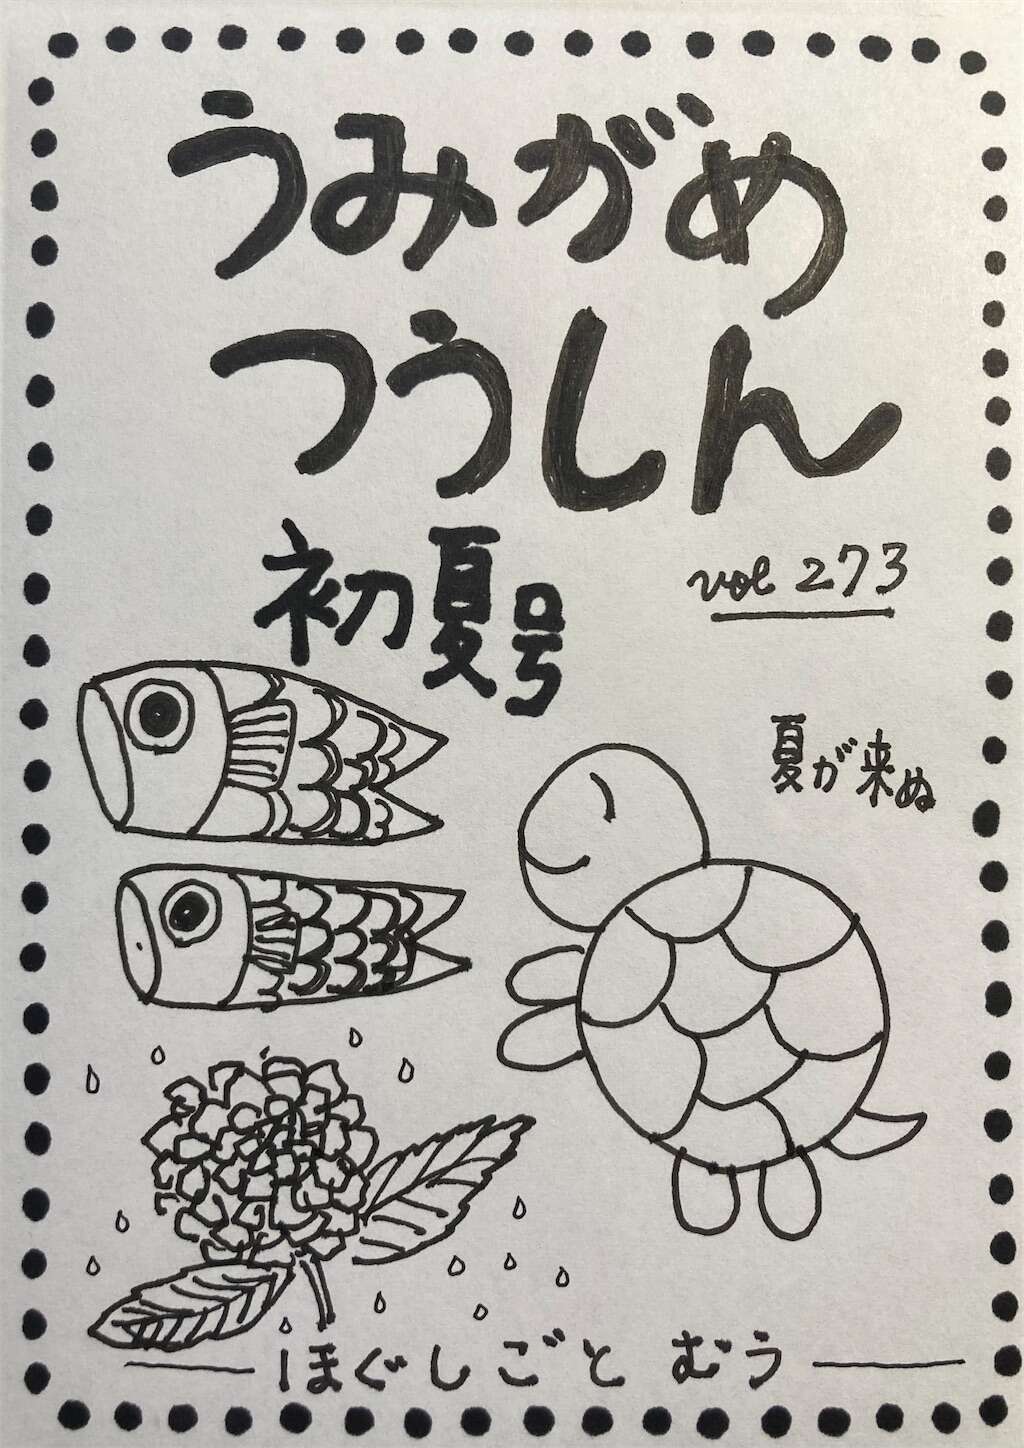 うみがめ
つうしん
初夏号
vol 273
夏が来ぬ
ほぐしごと むう